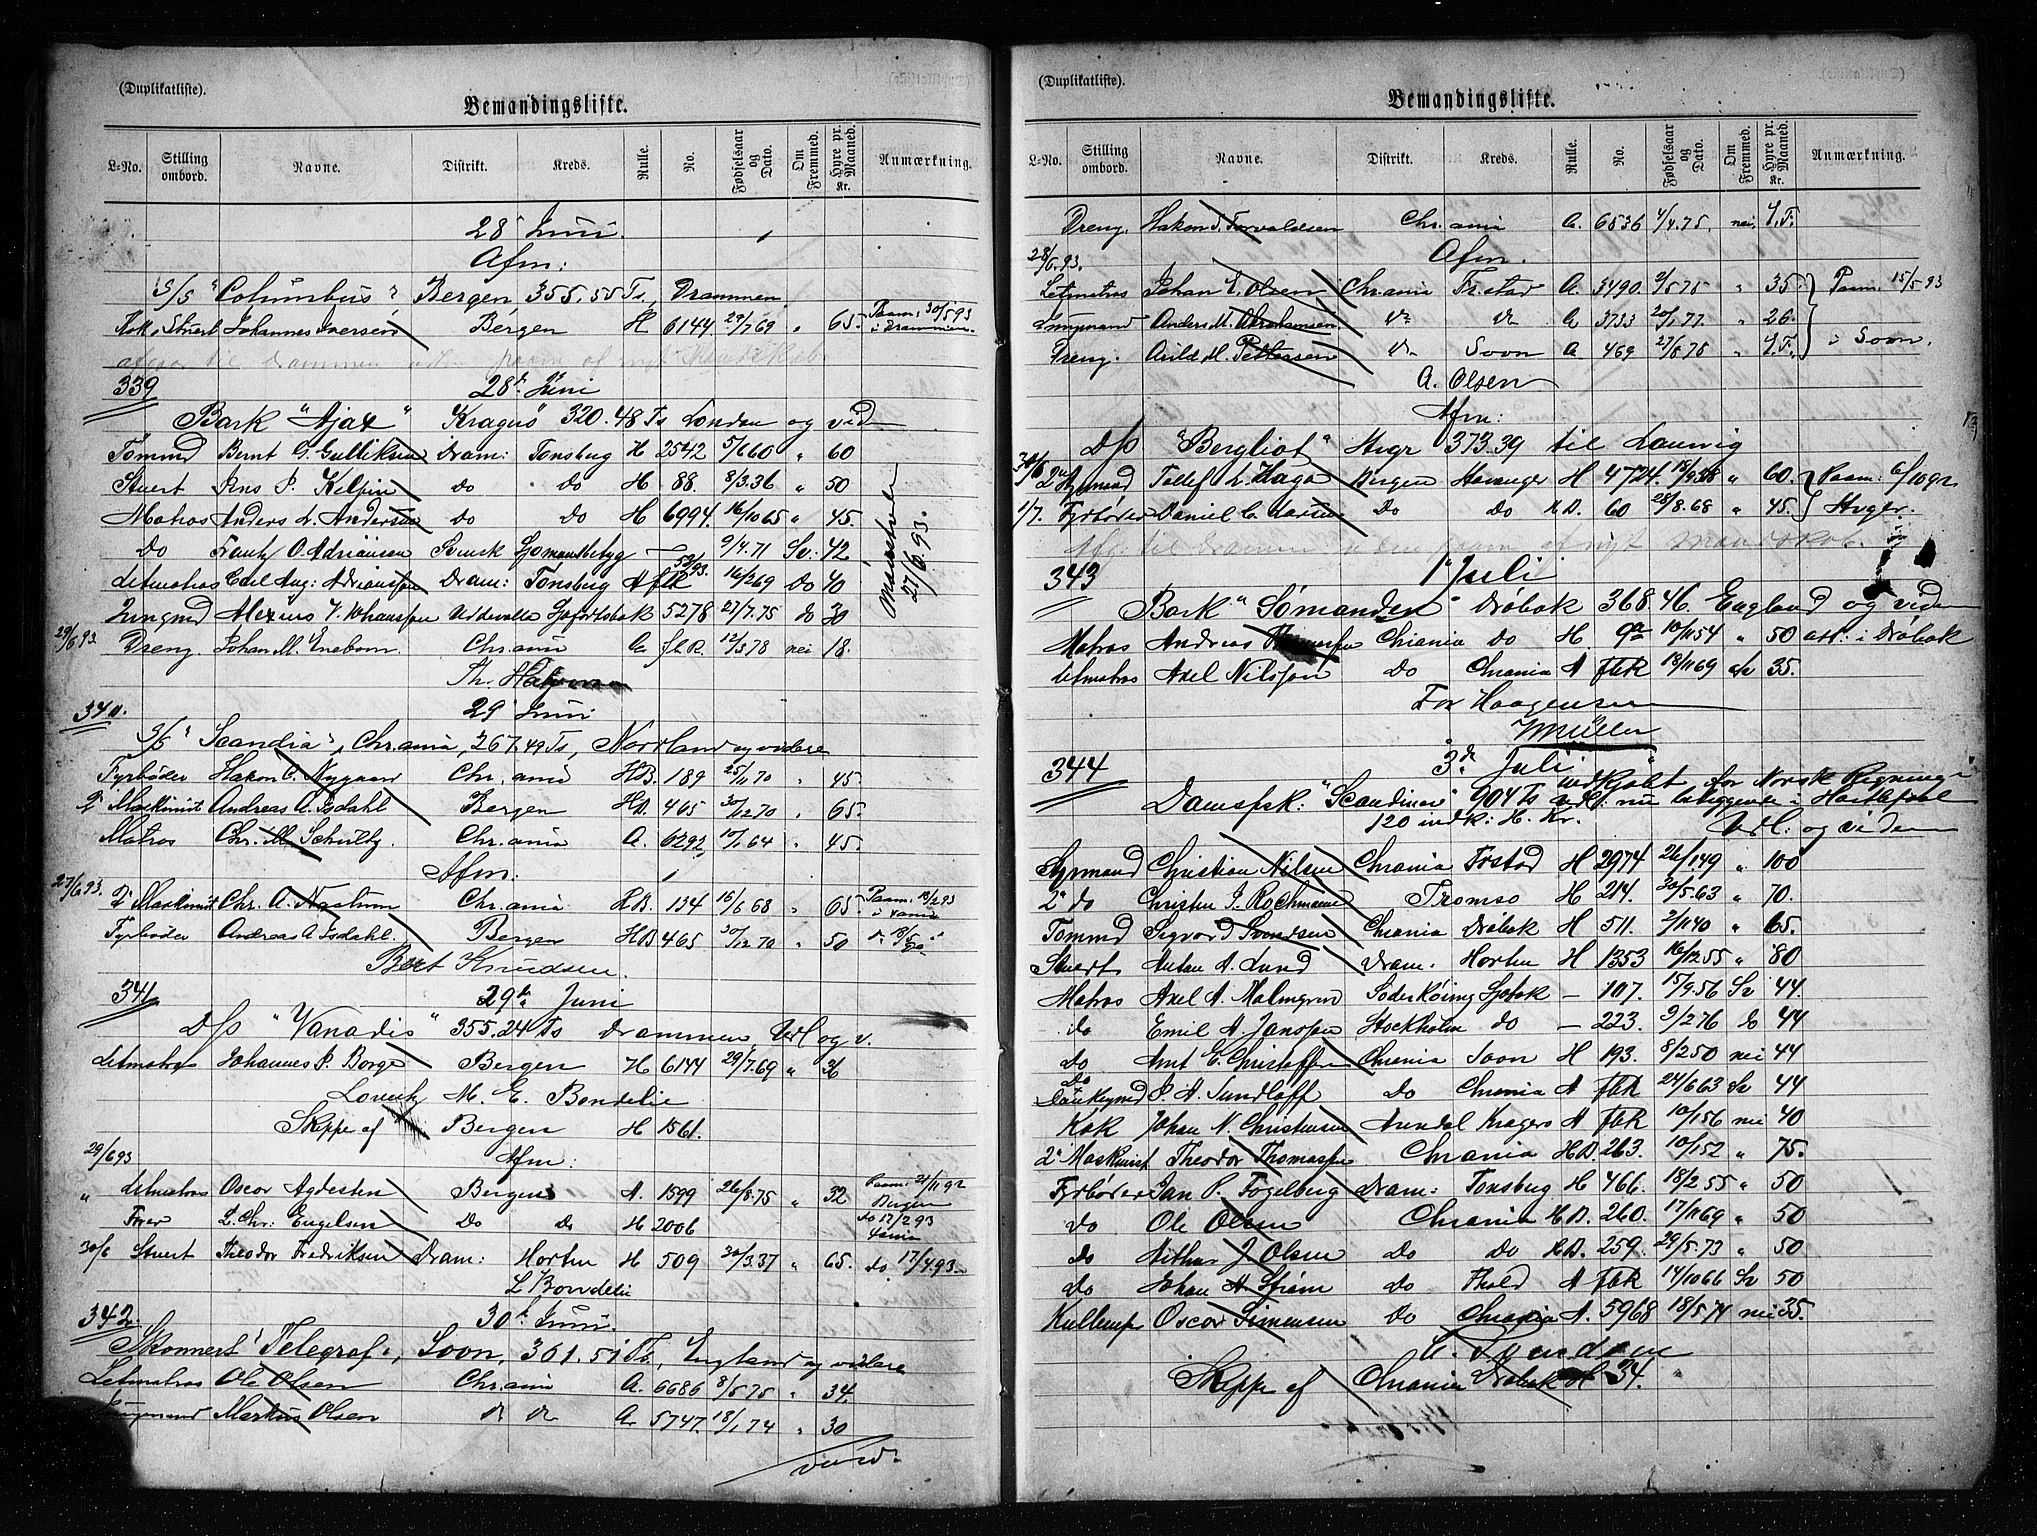 (Duplikatliste).
Bemandingsliste.
L-No. Stilling ombord. Navne. Distrikt. Kreds. Rulle. No. Fødselsaar og Dato. Om Fremmed. Hyre pr. Maaned. Kr. Anmærkning.
28 Juni.
Afm:
S/S "Columbus", Bergen, 355,55 Ts., Drammen.
Kok o Stuert Johannes Iversen Bergen H 6144 29/7 69 " 65. Paam: 30/5 93 i Drammen.
339 28d Juni
Bark "Ajax" Kragerø 320.48 Ts London og vid
Tømmd Bernt G. Gulliksen Dram: Tonsbug H 2542 5/6 60 " 60
Stuert Jens P. do do H 88. 8/3.36 " 50
Matros Anders L. Andersen do do H 6994. 16/10 65 " 45.
Do Frantz O. Adriansen Svensk — 9/4.71 Sv: 42
Letmatros Carl Aug: Adriansson Dram: Tonsbug A fbR 16/2 69 Do 40
Jungmd Alexius V. Johansson Uddevalla 5278 27/7.75 do 30
Mønstret 27/6.93.
29/6 93. Dreng. Johan M. Enebom Chr.ania A fbR. 12/3 78 nei 18.
Th.
340. 29 Juni
S/S "Scandia", Chr.ania, 267.49 Ts, Norrland og videre
Fyrbøder Hakon C. Nygaard Chr.ania HB. 189 25/11 70 " 45.
2' Maskinist Andreas A. Isdahl Bergen HB. 465 30/12 70 " 65.
Matros Chr. M. Schulby Chr.ania A. 6292 10/1 64 " 45.
Afm.
27/6 93. 2' Maskinist Chr. A. Naatrum Chr.ania HB. 134 16/6 68 " 65. Paam. /2 93
Fyrbøder Andreas A. Isdahl. Bergen HB 465 30/12 70 " 50
Bert Knudsen.
341 29de Juni
D/S "Vanadis" 355.24 Ts Drammen, Url og v.
Letmatros Johannes P. Borge Bergen H 6144 29/7.69 " 36
Lorentz M. E. Bondelie
Skippe af Bergen H 1561.
29/6 93 Afm:
" Letmatros Oscar Agdesten Bergen A. 1599 26/8.75 " 32 Paam: 21/11 92 Bergen
Fører L. Chr: Engelsen Do Do H 2006 do 12/2 93
30/6 Stuert Theodor Fredriksen Dram: Horten H 509 30/3.37 " 65. do 17/4.93.
L Bondelie
342. 30d Juni.
Skonnert "Telegraf", Soon, 361.51 Ts., England og videre
Letmatros Ole Olsen Chr.ania A. 6686 8/5 75 " 34.
Jungmand Markus Olsen do do A. 5747. 18/1 74 " 30
vend.
(Duplikatliste).
Bemandingsliste.
L-No. Stilling ombord. Navne. Distrikt. Kreds. Rulle. No. Fødselsaar og Dato. Om Fremmed. Hyre pr. Maaned. Kr. Anmærkning.
Dreng. Hakon T. Torvaldsen Chr.ania A. 6536 4/4.75. nei. I.F.
28/6.93. Afm.
Letmatros Johan E. Olsen Chrania Fr.stad A. 3490. 2/5 75 " 35. Paam. 15/5 93
Jungmand Anders M. Abrahamsen do do A. 3733 20/1 77. " 26.
Dreng. Arild M. Pettersen do Soon A 469 27/8 78 " I.F. i Soon.
A. Olsen
Afm:
D/S "Bergliot" Stvgr 373.39 til Laurvig
30/6 2n Styrmd Tollef L. Haga Bergen Stavanger H 4724. " 60. Paam: 6/10 92
1/7. Fyrbøder Daniel C. Do Do HD. 60 28/8.68 " 45. Stvger.
343 1' Juli
Bark "Sømanden" Drøbak 368.46. England og viden
Matros Andreas Chrania Do H 9a 10/11 54 " 50 att: i Drøbak
Letmatros Axel Nilsson Do Chrania A fbR 18/11 69 Sv 35.
For Haagensen
Müller
344 3de Juli
Dampsk: "Scandinav" 904 Ts indkjøbt for Norsk Regning nu beliggende i Hartlepool
120 indk: H. Kr. Url: og viden
Styrmand Christian Nilsen Chrania Frstad H 2974 26/1 49 " 100
2n do Christen J. Rochmann Tromsø H 214. 30/5.63 " 70.
Tømmd Sigvard Svendsen Chrania Drøbak H 511. 2/11 40 " 65.
Stuert Anton A. Lund Dram. Horten H 1353 16/12 55 " 80
Matros Axel A. Malmgren Söderköping — 107. 15/9.56 Sv 44.
do Emil A. Jansson Stockholm do — 223. 9/2 76 do 44
do Amt E. Christoffersen Chrania Soon H 193. 8/2 50 nei 44
Do Donkeymd P. A. Sundloff Do Chrania A fbR 24/6 63 Sv 44
Kok Johan N. Christensen Arendal Kragerø A fbR 10/1 56 nei 40
2n Maskinist Theodor Thomassen Chrania HD. 263. 10/1 52 " 75.
Fyrbøder Jan P. Fogelberg Dram: Tonsbug H 466. 18/2 55 " 50
do Ole Olsen Chrania HD. 260. 17/11 69 " 50
do Arthur J. Olsen Do Do HD. 259. 29/5.73 " 50
do Johan A. Strøm Do Fhald A fbR 14/10 66 Sv 50
Kullemp Oscar Simensen Do Chrania A. 5968 18/5 74 nei 35.
Skippe af Chrania Drøbak H 34.